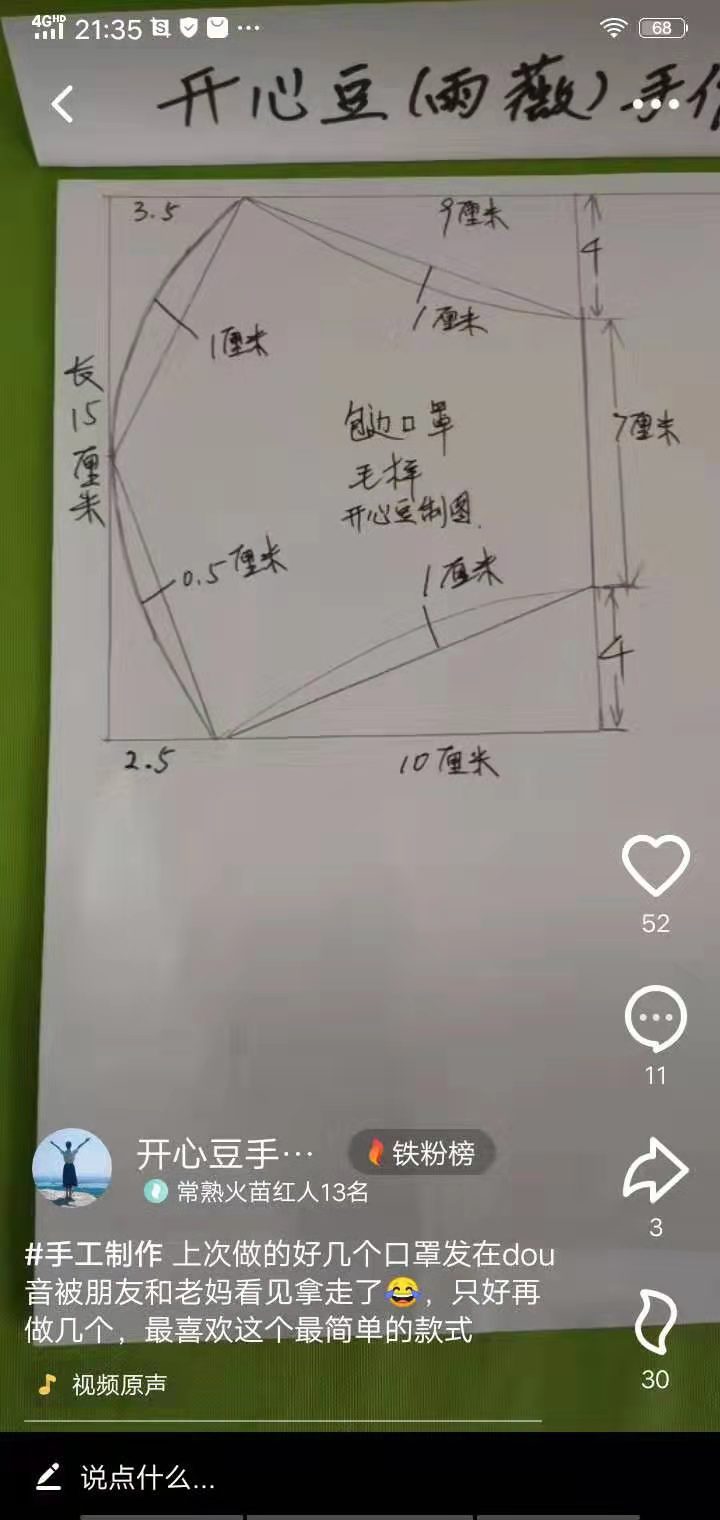 4GHD 21:35 68
开心豆(雨薇)手作
3.5
9厘米
4
1厘米
1厘米
长15厘米
包边口罩
毛样
开心豆制图.
7厘米
0.5厘米
1厘米
4
2.5
10厘米
52
11
3
30
开心豆手…
铁粉榜
常熟火苗红人13名
#手工制作 上次做的好几个口罩发在dou
音被朋友和老妈看见拿走了😂，只好再
做几个，最喜欢这个最简单的款式
视频原声
说点什么...